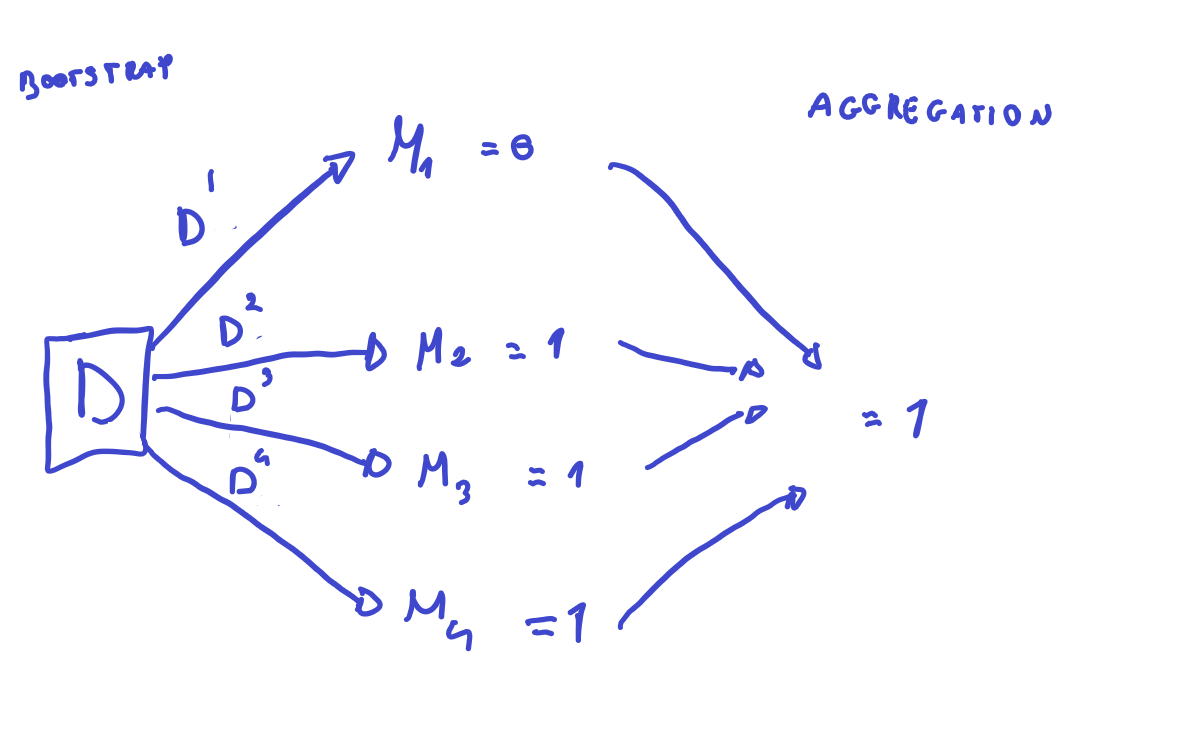 BOOTSTRAP
AGGREGATION
D¹
M₁ = 0
D²
M₂ = 1
D
D³
= 1
D⁴
M₃ = 1
M₄ = 1